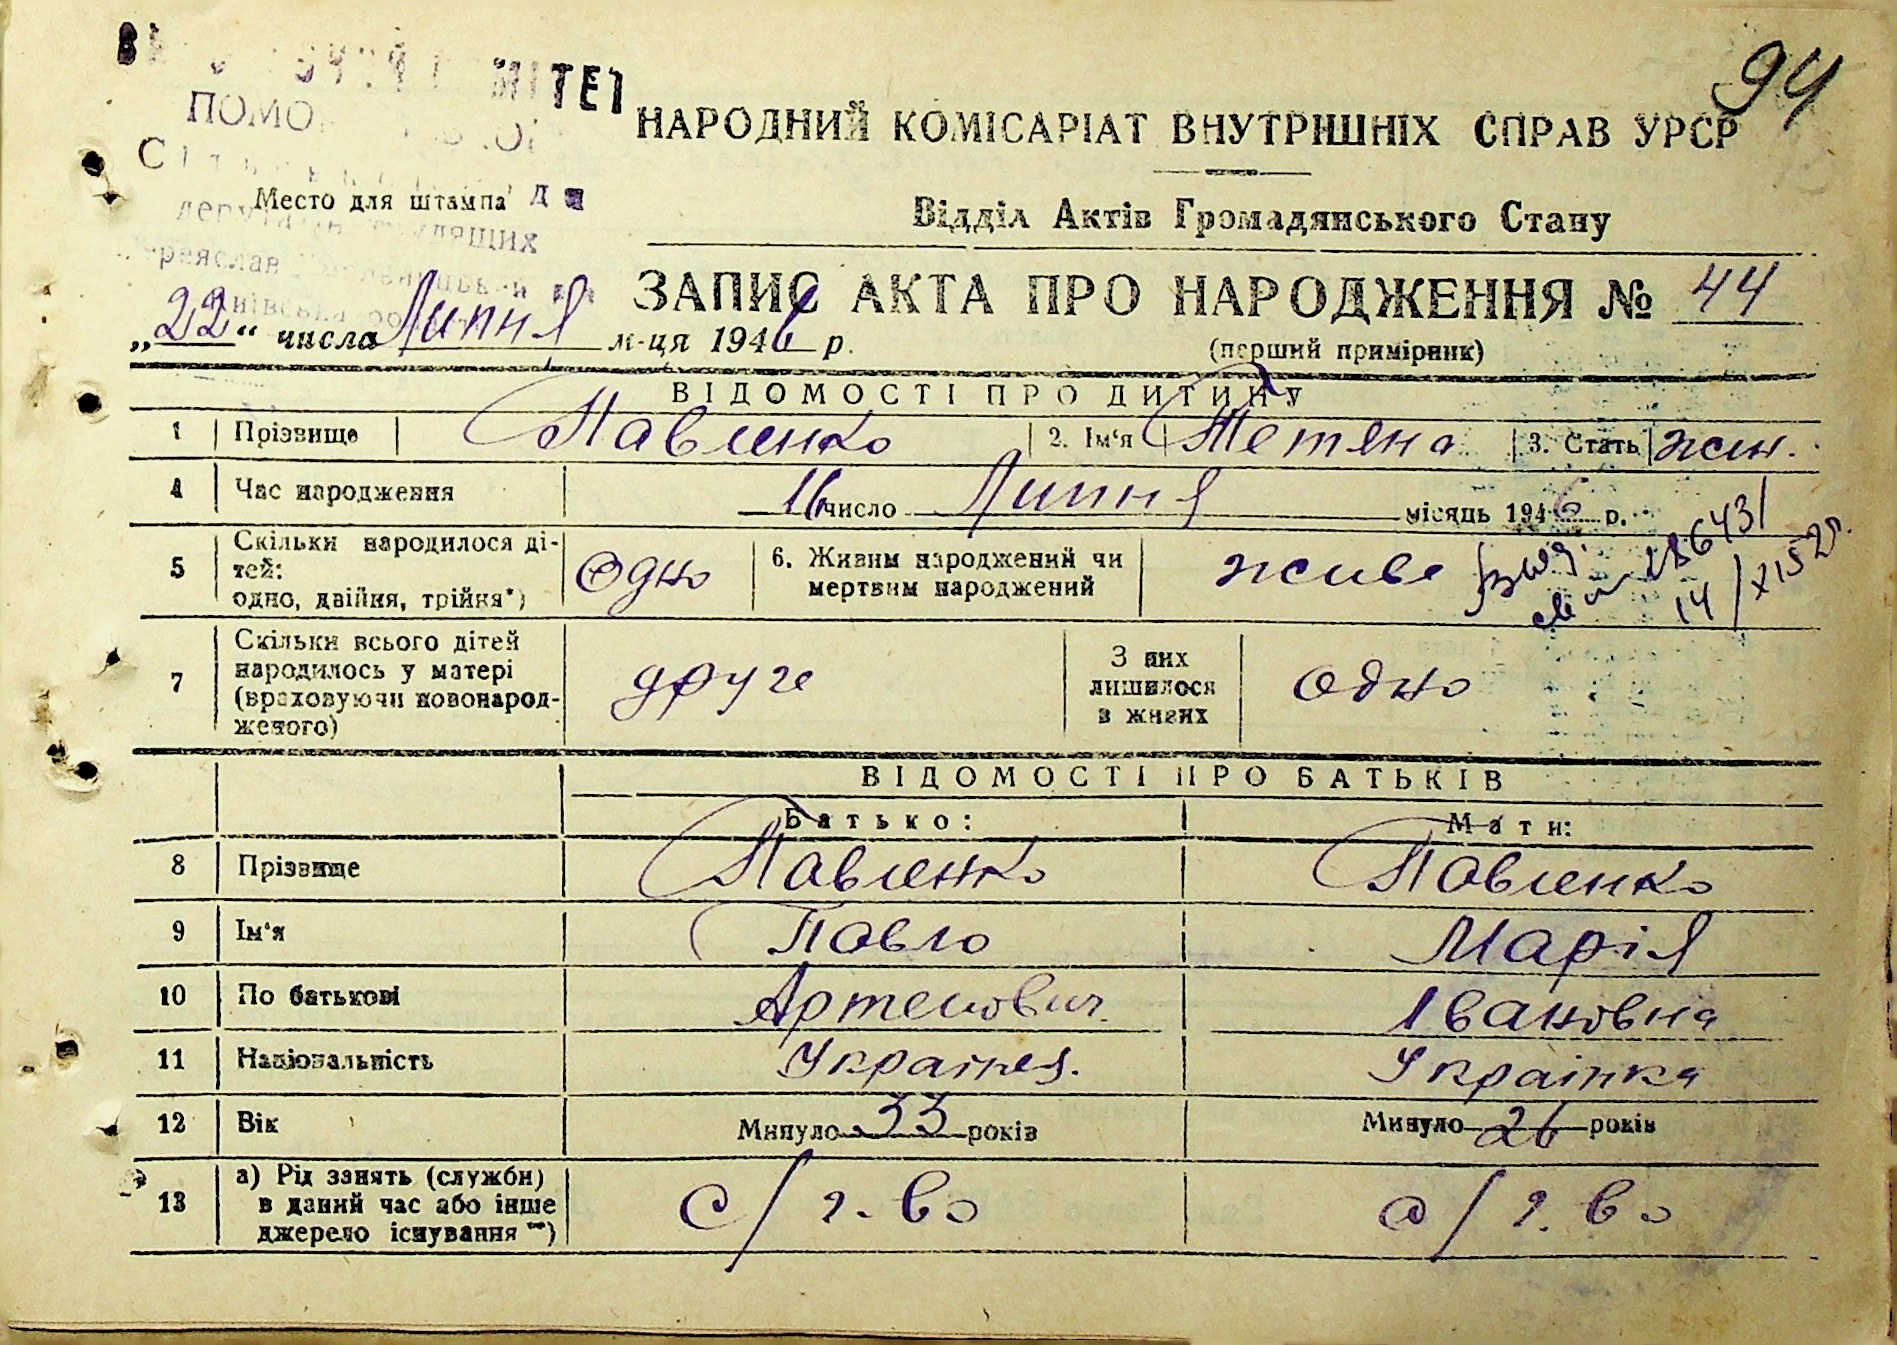 94
НАРОДНИЙ КОМІСАРІАТ ВНУТРІШНІХ СПРАВ УРСР
Место для штампа
Відділ Актів Громадянського Стану
ЗАПИС АКТА ПРО НАРОДЖЕННЯ № 44
„22“ числа Липня м-ця 1946 р.
(перший примірник)
ВІДОМОСТІ ПРО ДИТИНУ
1 Прізвище Павленко 2. Ім'я Тетяна 3. Стать жін.
4 Час народження 16 число Липня місяць 1946 р.
5 Скільки народилося дітей: одно, двійня, трійня*) Одно 6. Живим народжений чи мертвим народжений живе
7 Скільки всього дітей народилось у матері (враховуючи новонародженого) друге З них лишилося в живих одно
ВІДОМОСТІ ПРО БАТЬКІВ
Батько: Мати:
8 Прізвище Павленко Павленко
9 Ім'я Павло Марія
10 По батькові Артемович Івановна
11 Національність Українец. Українка
12 Вік Минуло 33 років Минуло 26 років
13 а) Рід занять (служби) в даний час або інше джерело існування **) с/г-во с/г-во